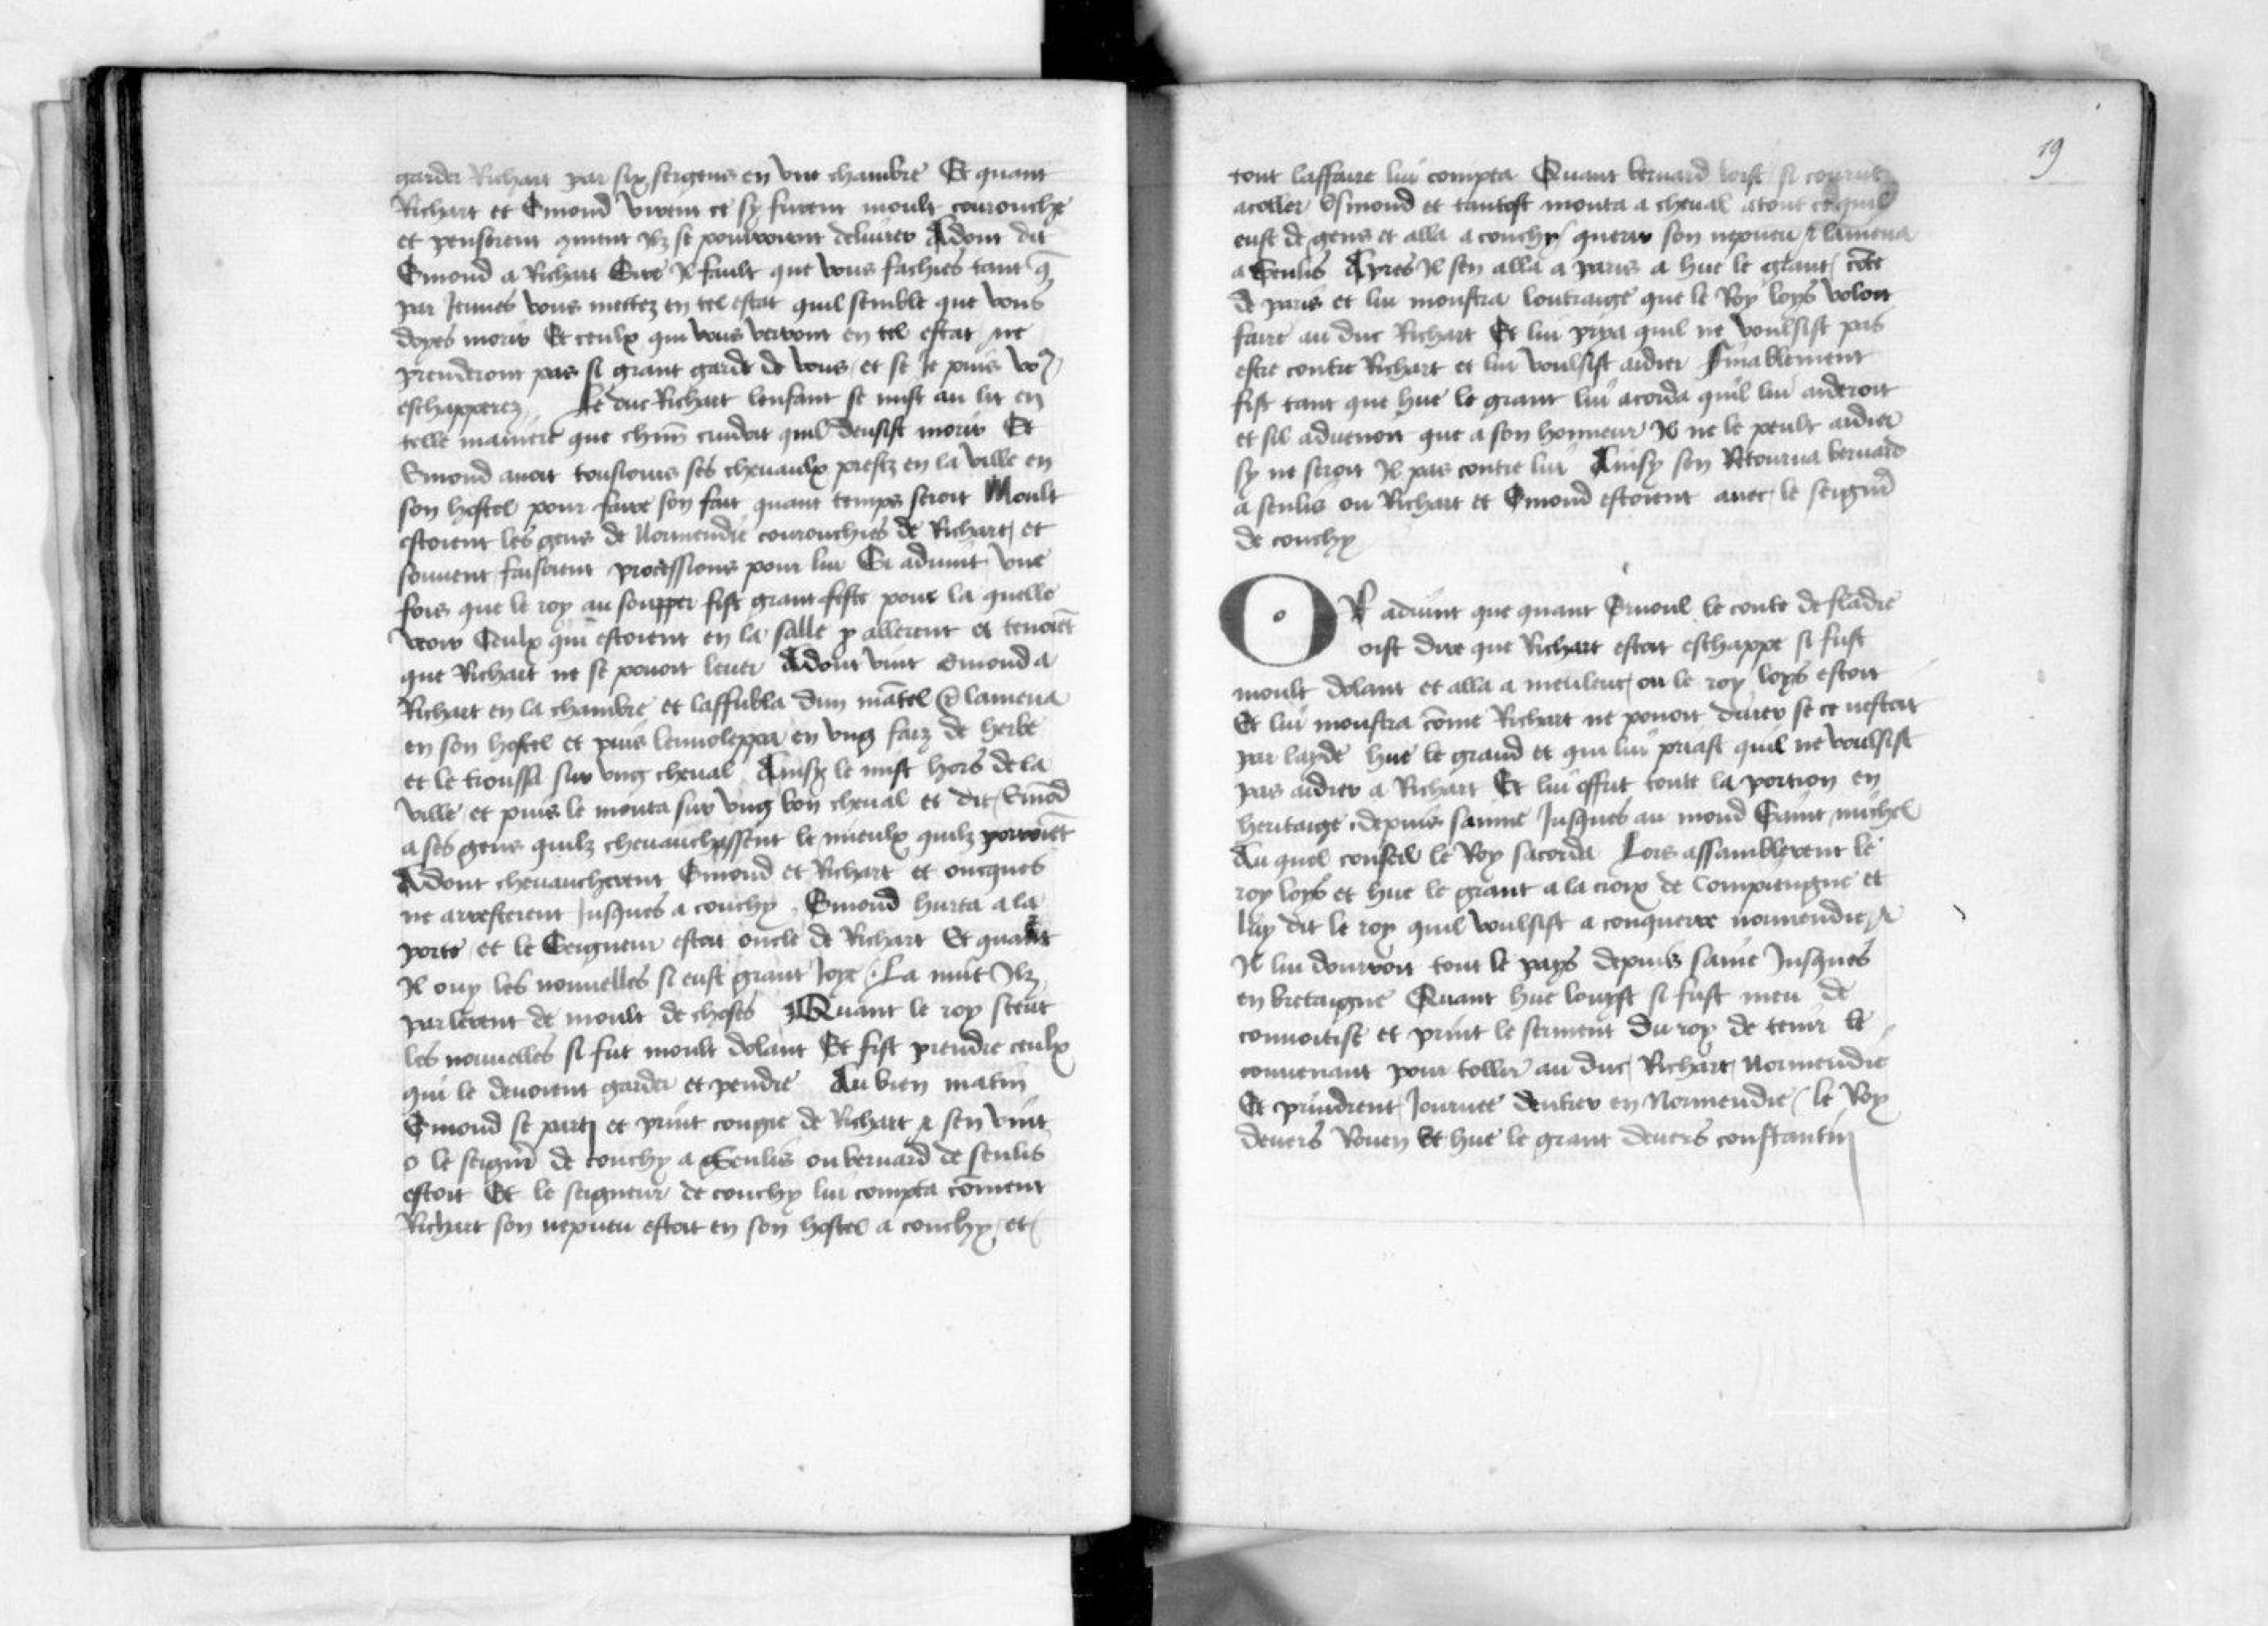 garder Richart par six sergens en une chambre Et quant
Richart et Esmond virent ce sy furent moult courouche
et penserent gment Ilz se pourroient deliurer Adont dit
Esmond a Richart Sire Il fault que vous fachies tant q̄
par Jeunes vous mettez en tel estat quil semble que vous
doyes morir Et ceulx qui vous verront en tel estat ne
prenderont pas si grant garde de vous et se Je puis vo9
eschapperez Le duc Richart lenfant se mist au lit en
telle maniere que chūn cuidoit quil deusist morir Et
Esmond auoit tousiours ses cheuaulx prestz en la ville en
son hostel pour faire son fait quant temps seroit Moult
estoient les gens de Normendie courouchies de Richart et
souuent faisoient processions pour lui Si aduint vne
fois que le roy au soupper fist grant feste pour la quelle
veoir Ceulx qui estoient en la salle y allerent et tenoiēt
que Richart ne se pouoit leuer Adont vint esmond a
Richart en la chambre et laffubla dun mātel & lamena
en son hostel et puis lenuoleppa en vng faiz de herbe
et le troussa sur vng cheual Ainsy le mist hors de la
ville et puis le monta sur vng bon cheual et dit Esmōd
a ses gens quilz cheuauchassent le mieulx quilz porroiēt
Adont cheuaucherent Esmond et Richart et oncques
ne arresterent Jusques a couchy Esmond hurta a la
porte et le Seigneur estoit oncle de Richart Et quant
Il ouy les nouuelles si eust grant Joye La nuit Ilz
parlerent de moult de choses Quant le roy sceut
les nouuelles si fut moult dolant Et fist prendre ceulx
qui le deuoient garder et pendre Au bien matin
Esmond se parti et print congie de Richart & sen vint
o le seignr̄ de couchy a Senlis ou bernard de senlis
estoit Et le seigneur de couchy lui compta cōment
Richart son nepueu estoit en son hostel a couchy et
19
tout laffaire lui compta Quant bernard loist si courut
acoller Osmond et tantost monta a cheual atout ce quil
eust de gens et alla a couchy querir son nepueu & lamena
a Senlis Apres Il sen alla a paris a hue le grant cōte
de paris et lui monstra loutraige que le Roy loys voloit
faire au duc Richart Et lui prya quil ne voulsist pas
estre contre Richart et lui voulsist aidier Finablement
fist tant que hue le grant lui acorda quil lui aideroit
et sil aduenoit que a son honneur Il ne le peult aidier
sy ne seroit Il pas contre lui Ainsy sen Retourna bernard
a senlis ou Richart et Esmond estoient auec le seignr̄
de couchy
OR aduint que quant Ernoul le conte de flādre
oist dire que Richart estoit eschappe si fust
moult dolant et alla a meuleuc ou le roy loys estoit
Et lui monstra cōme Richart ne pouoit durer se ce nestoit
par layde hue le grand et qui lui priast quil ne voulsist
pas aidier a Richart Et lui offrit toute la portion en
heritaige depuis sainne Jusques au mond Saint michel
Au quel conseil le Roy sacorda Lors assamblerent le
roy loys et hue le grant a la croix de Compiengne et
luy dit le roy quil voulsist a conquerre normendie &
Il lui donrroit tout le pays depuis saine Jusques
en bretaigne Quant hue louyst si fust meu de
conuoitise et print le serment du roy de tenir le
conuenant pour tollir au duc Richart Normendie
Et prindrent Journee dentrer en Normendie le Roy
deuers Rouen Et hue le grant deuers constantin